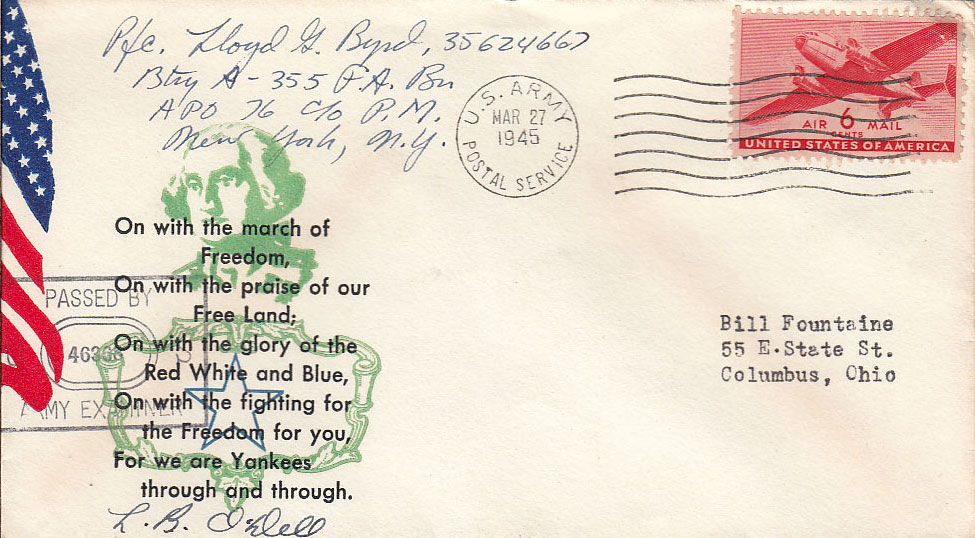 Pfc. Lloyd G. Byrd, 35624667
Btry A - 355 F.A. Bn
APO 76 c/o P.M.
New York, N.Y.
U.S. ARMY
MAR 27
1945
POSTAL SERVICE
AIR 6 MAIL
CENTS
UNITED STATES OF AMERICA
On with the march of
Freedom,
On with the praise of our
Free Land;
On with the glory of the
Red White and Blue,
On with the fighting for
the Freedom for you,
For we are Yankees
through and through.
PASSED BY
S
ARMY EXAMINER
L. B. O'Dell
Bill Fountaine
55 E.State St.
Columbus, Ohio